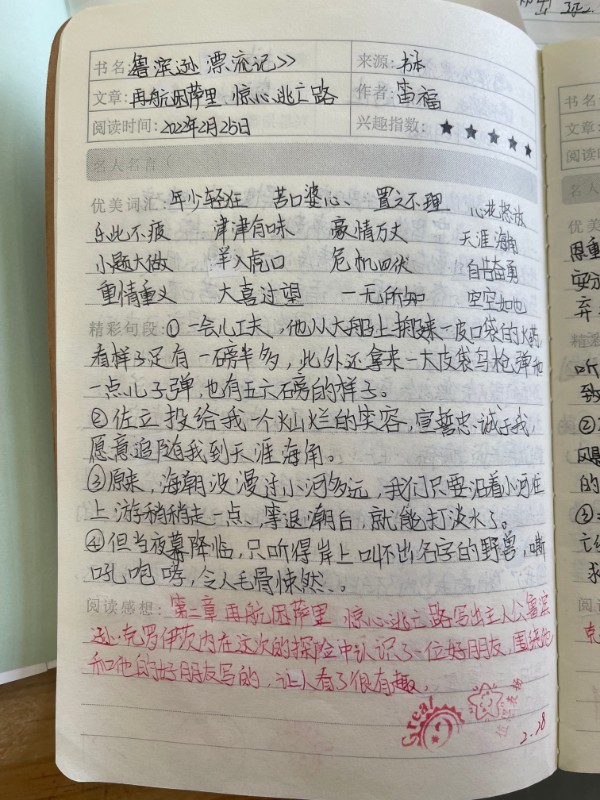 书名:鲁滨逊漂流记>> 来源:书本
文章:再航困萨里 惊心逃亡路 作者:笛福
阅读时间:2022年2月25日 兴趣指数:★★★★★
名人名言
优美词汇:年少轻狂 苦口婆心、置之不理 心花怒放
乐此不疲 津津有味 豪情万丈 天涯海角
小题大做 羊入虎口 危机四伏 自告奋勇
重情重义 大喜过望 一无所知 空空如也
精彩句段:①一会儿工夫,他从大船上搬来一皮口袋的火药,
看样子足有一磅半多,此外还拿来一大皮袋鸟枪弹和
一点儿子弹,也有五六磅的样子。
②佐立投给我一个灿烂的笑容,宣誓忠诚于我,
愿意追随我到天涯海角。
③原来,海潮没漫过小河多远,我们只要沿着小河往
上游稍稍走一点、等退潮后,就能打淡水了。
④但当夜幕降临,只听得岸上叫不出名字的野兽,嘶
吼咆哮,令人毛骨悚然、。
阅读感想:第二章再航困萨里 惊心逃亡路写出主人公鲁滨
逊·克罗伊茨内在这次的探险中认识了一位好朋友,围绕他
和他的好朋友写的,让人看了很有趣。
Great
2.28